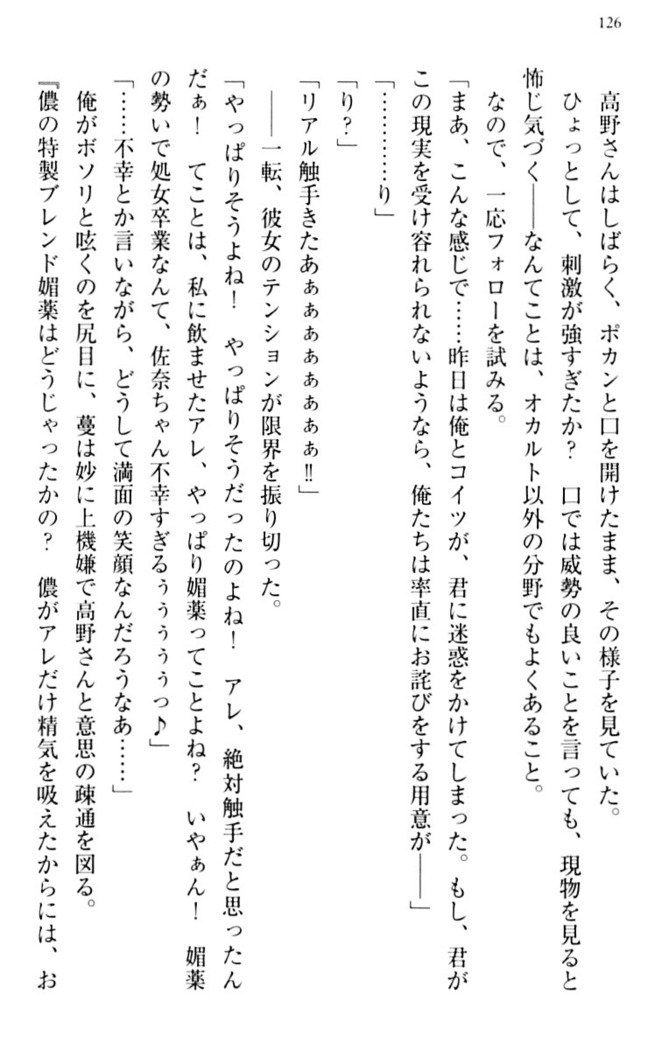 126
高野さんはしばらく、ポカンと口を開けたまま、その様子を見ていた。
ひょっとして、刺激が強すぎたか？　口では威勢の良いことを言っても、現物を見ると
怖じ気づく――なんてことは、オカルト以外の分野でもよくあること。
なので、一応フォローを試みる。
「まあ、こんな感じで……昨日は俺とコイツが、君に迷惑をかけてしまった。もし、君が
この現実を受け容れられないようなら、俺たちは率直にお詫びをする用意が――」
「…………り」
「り？」
「リアル触手きたあぁぁぁぁぁぁぁぁ‼」
――一転、彼女のテンションが限界を振り切った。
「やっぱりそうよね！　やっぱりそうだったのよね！　アレ、絶対触手だと思ったん
だぁ！　てことは、私に飲ませたアレ、やっぱり媚薬ってことよね？　いやぁん！　媚薬
の勢いで処女卒業なんて、佐奈ちゃん不幸すぎるぅぅぅぅぅっ♪」
「……不幸とか言いながら、どうして満面の笑顔なんだろうなあ……」
俺がボソリと呟くのを尻目に、蔓は妙に上機嫌で高野さんと意思の疎通を図る。
『儂の特製ブレンド媚薬はどうじゃったかの？　儂がアレだけ精気を吸えたからには、お